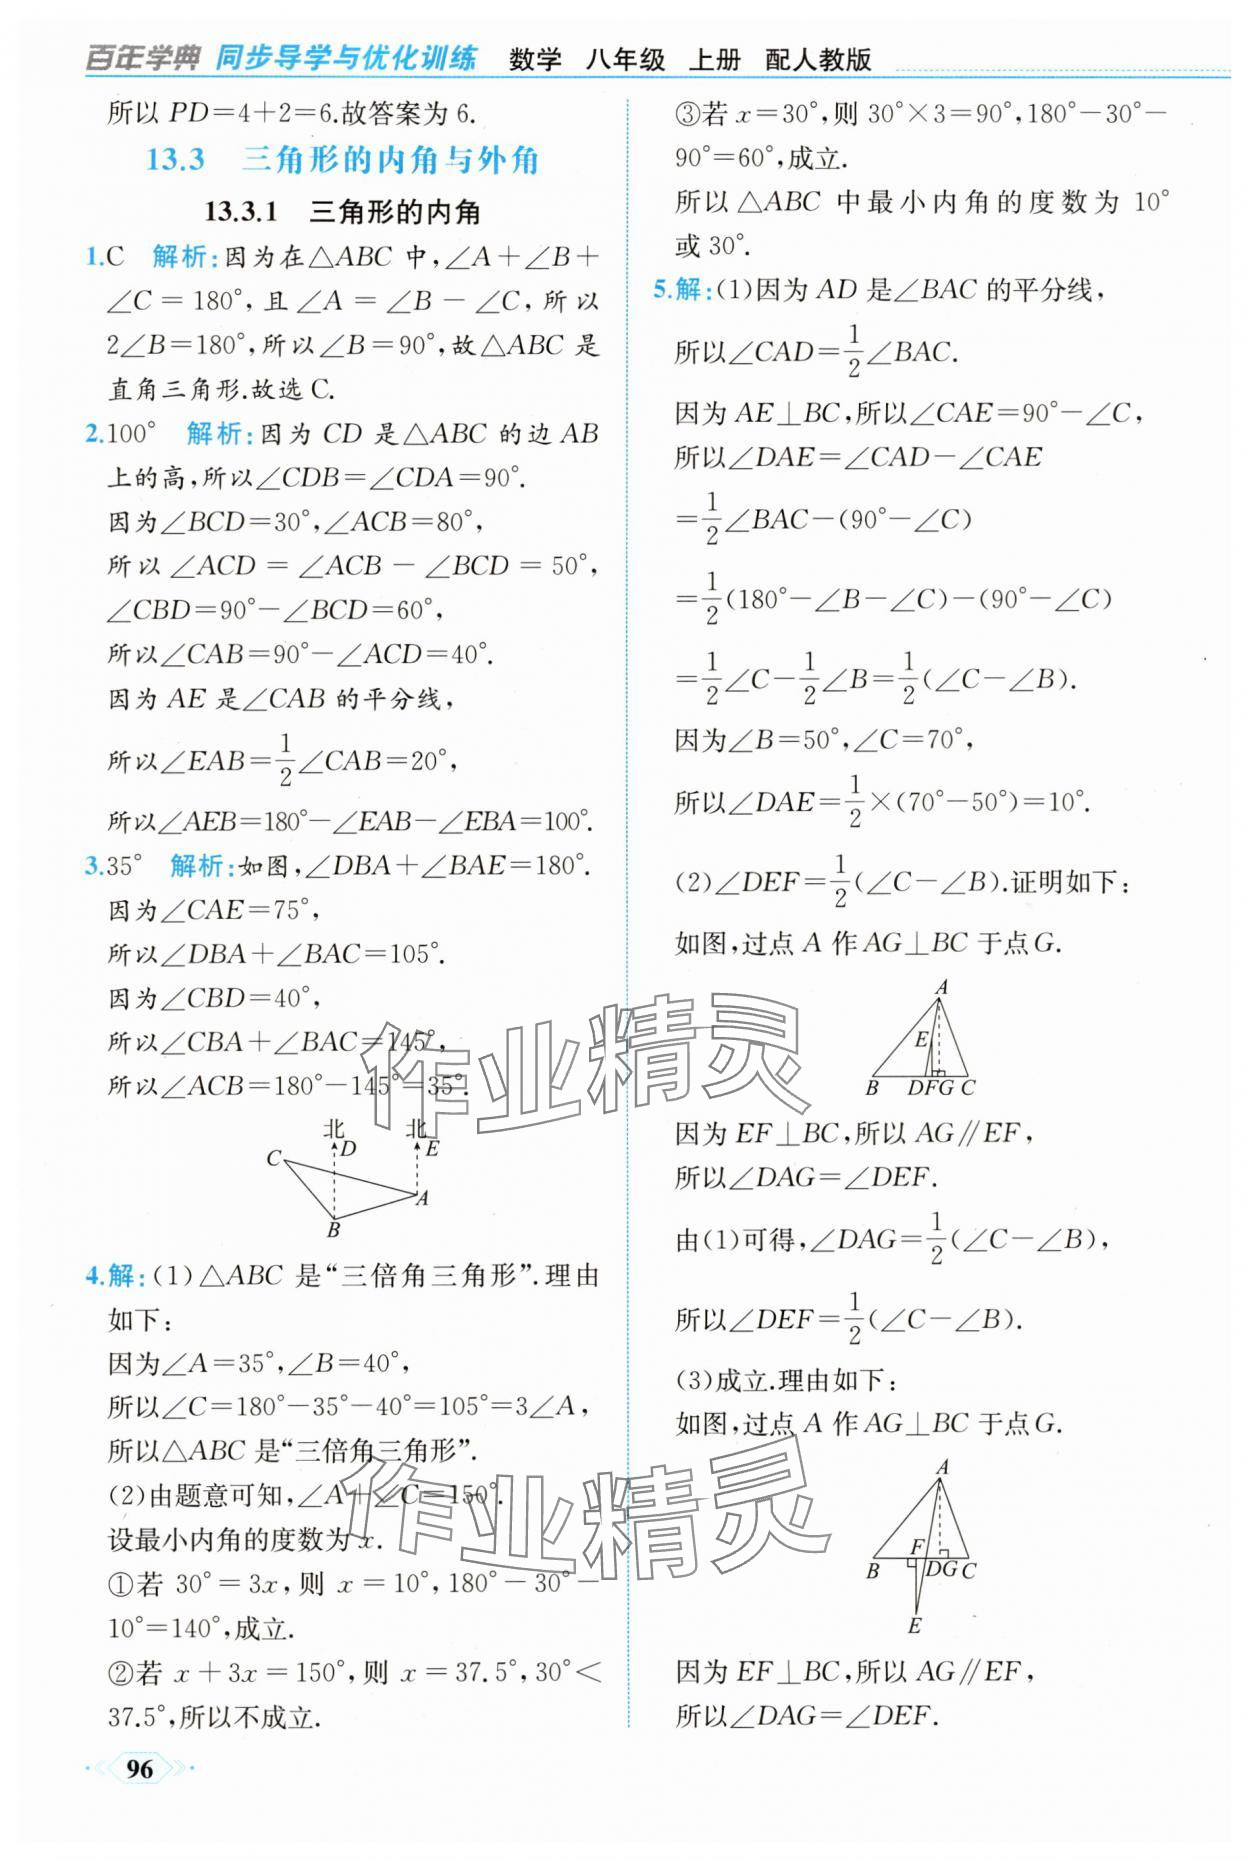 百年学典 同步导学与优化训练 数学 八年级 上册 配人教版
所以 PD=4+2=6.故答案为 6.
13.3 三角形的内角与外角
13.3.1 三角形的内角
1.C 解析:因为在△ABC 中,∠A+∠B+
∠C=180°,且∠A=∠B-∠C,所以
2∠B=180°,所以∠B=90°,故△ABC 是
直角三角形.故选 C.
2.100° 解析:因为 CD 是△ABC 的边 AB
上的高,所以∠CDB=∠CDA=90°.
因为∠BCD=30°,∠ACB=80°,
所以∠ACD=∠ACB-∠BCD=50°,
∠CBD=90°-∠BCD=60°,
所以∠CAB=90°-∠ACD=40°.
因为 AE 是∠CAB 的平分线,
所以∠EAB=1/2∠CAB=20°,
所以∠AEB=180°-∠EAB-∠EBA=100°.
3.35° 解析:如图,∠DBA+∠BAE=180°.
因为∠CAE=75°,
所以∠DBA+∠BAC=105°.
因为∠CBD=40°,
所以∠CBA+∠BAC=145°,
所以∠ACB=180°-145°=35°.
北 北
D E
C
A
B
4.解:(1)△ABC 是“三倍角三角形”.理由
如下:
因为∠A=35°,∠B=40°,
所以∠C=180°-35°-40°=105°=3∠A,
所以△ABC 是“三倍角三角形”.
(2)由题意可知,∠A+∠C=150°.
设最小内角的度数为 x.
①若 30°=3x,则 x=10°,180°-30°-
10°=140°,成立.
②若 x+3x=150°,则 x=37.5°,30°<
37.5°,所以不成立.
96
③若 x=30°,则 30°×3=90°,180°-30°-
90°=60°,成立.
所以△ABC 中最小内角的度数为 10°
或 30°.
5.解:(1)因为 AD 是∠BAC 的平分线,
所以∠CAD=1/2∠BAC.
因为 AE⊥BC,所以∠CAE=90°-∠C,
所以∠DAE=∠CAD-∠CAE
=1/2∠BAC-(90°-∠C)
=1/2(180°-∠B-∠C)-(90°-∠C)
=1/2∠C-1/2∠B=1/2(∠C-∠B).
因为∠B=50°,∠C=70°,
所以∠DAE=1/2×(70°-50°)=10°.
(2)∠DEF=1/2(∠C-∠B).证明如下:
如图,过点 A 作 AG⊥BC 于点 G.
A
E
B DFG C
因为 EF⊥BC,所以 AG∥EF,
所以∠DAG=∠DEF.
由(1)可得,∠DAG=1/2(∠C-∠B),
所以∠DEF=1/2(∠C-∠B).
(3)成立.理由如下:
如图,过点 A 作 AG⊥BC 于点 G.
A
F
B DG C
E
因为 EF⊥BC,所以 AG∥EF,
所以∠DAG=∠DEF.
作业精灵
作业精灵